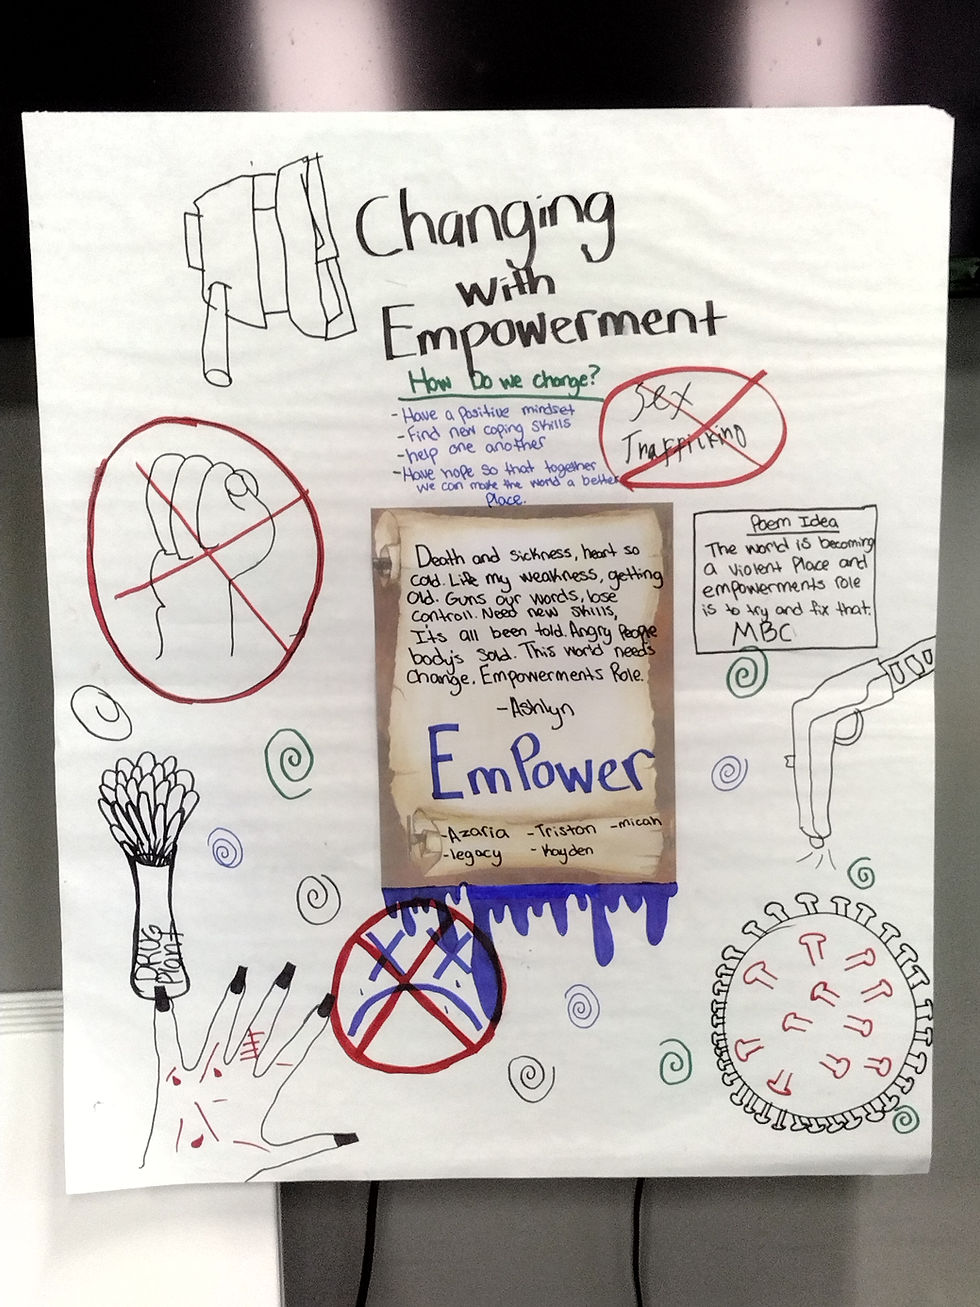 Changing
with
Empowerment
How Do we change?
- Have a positive mindset
- Find new coping skills
- help one another
- Have hope so that together
we can make the world a better
Place.
Sex
Trafficking
Poem Idea
The world is becoming
a violent Place and
empowerments role
is to try and fix that.
MBC
Death and sickness, heart so
cold. Life my weakness, getting
Old. Guns our words, lose
controll. Need new skills,
Its all been told. Angry People
body's sold. This world needs
change. Empowerments Role.
-Ashlyn
EmPower
-Azaria -Triston -micah
-legacy -Kayden
DRUG
Plant